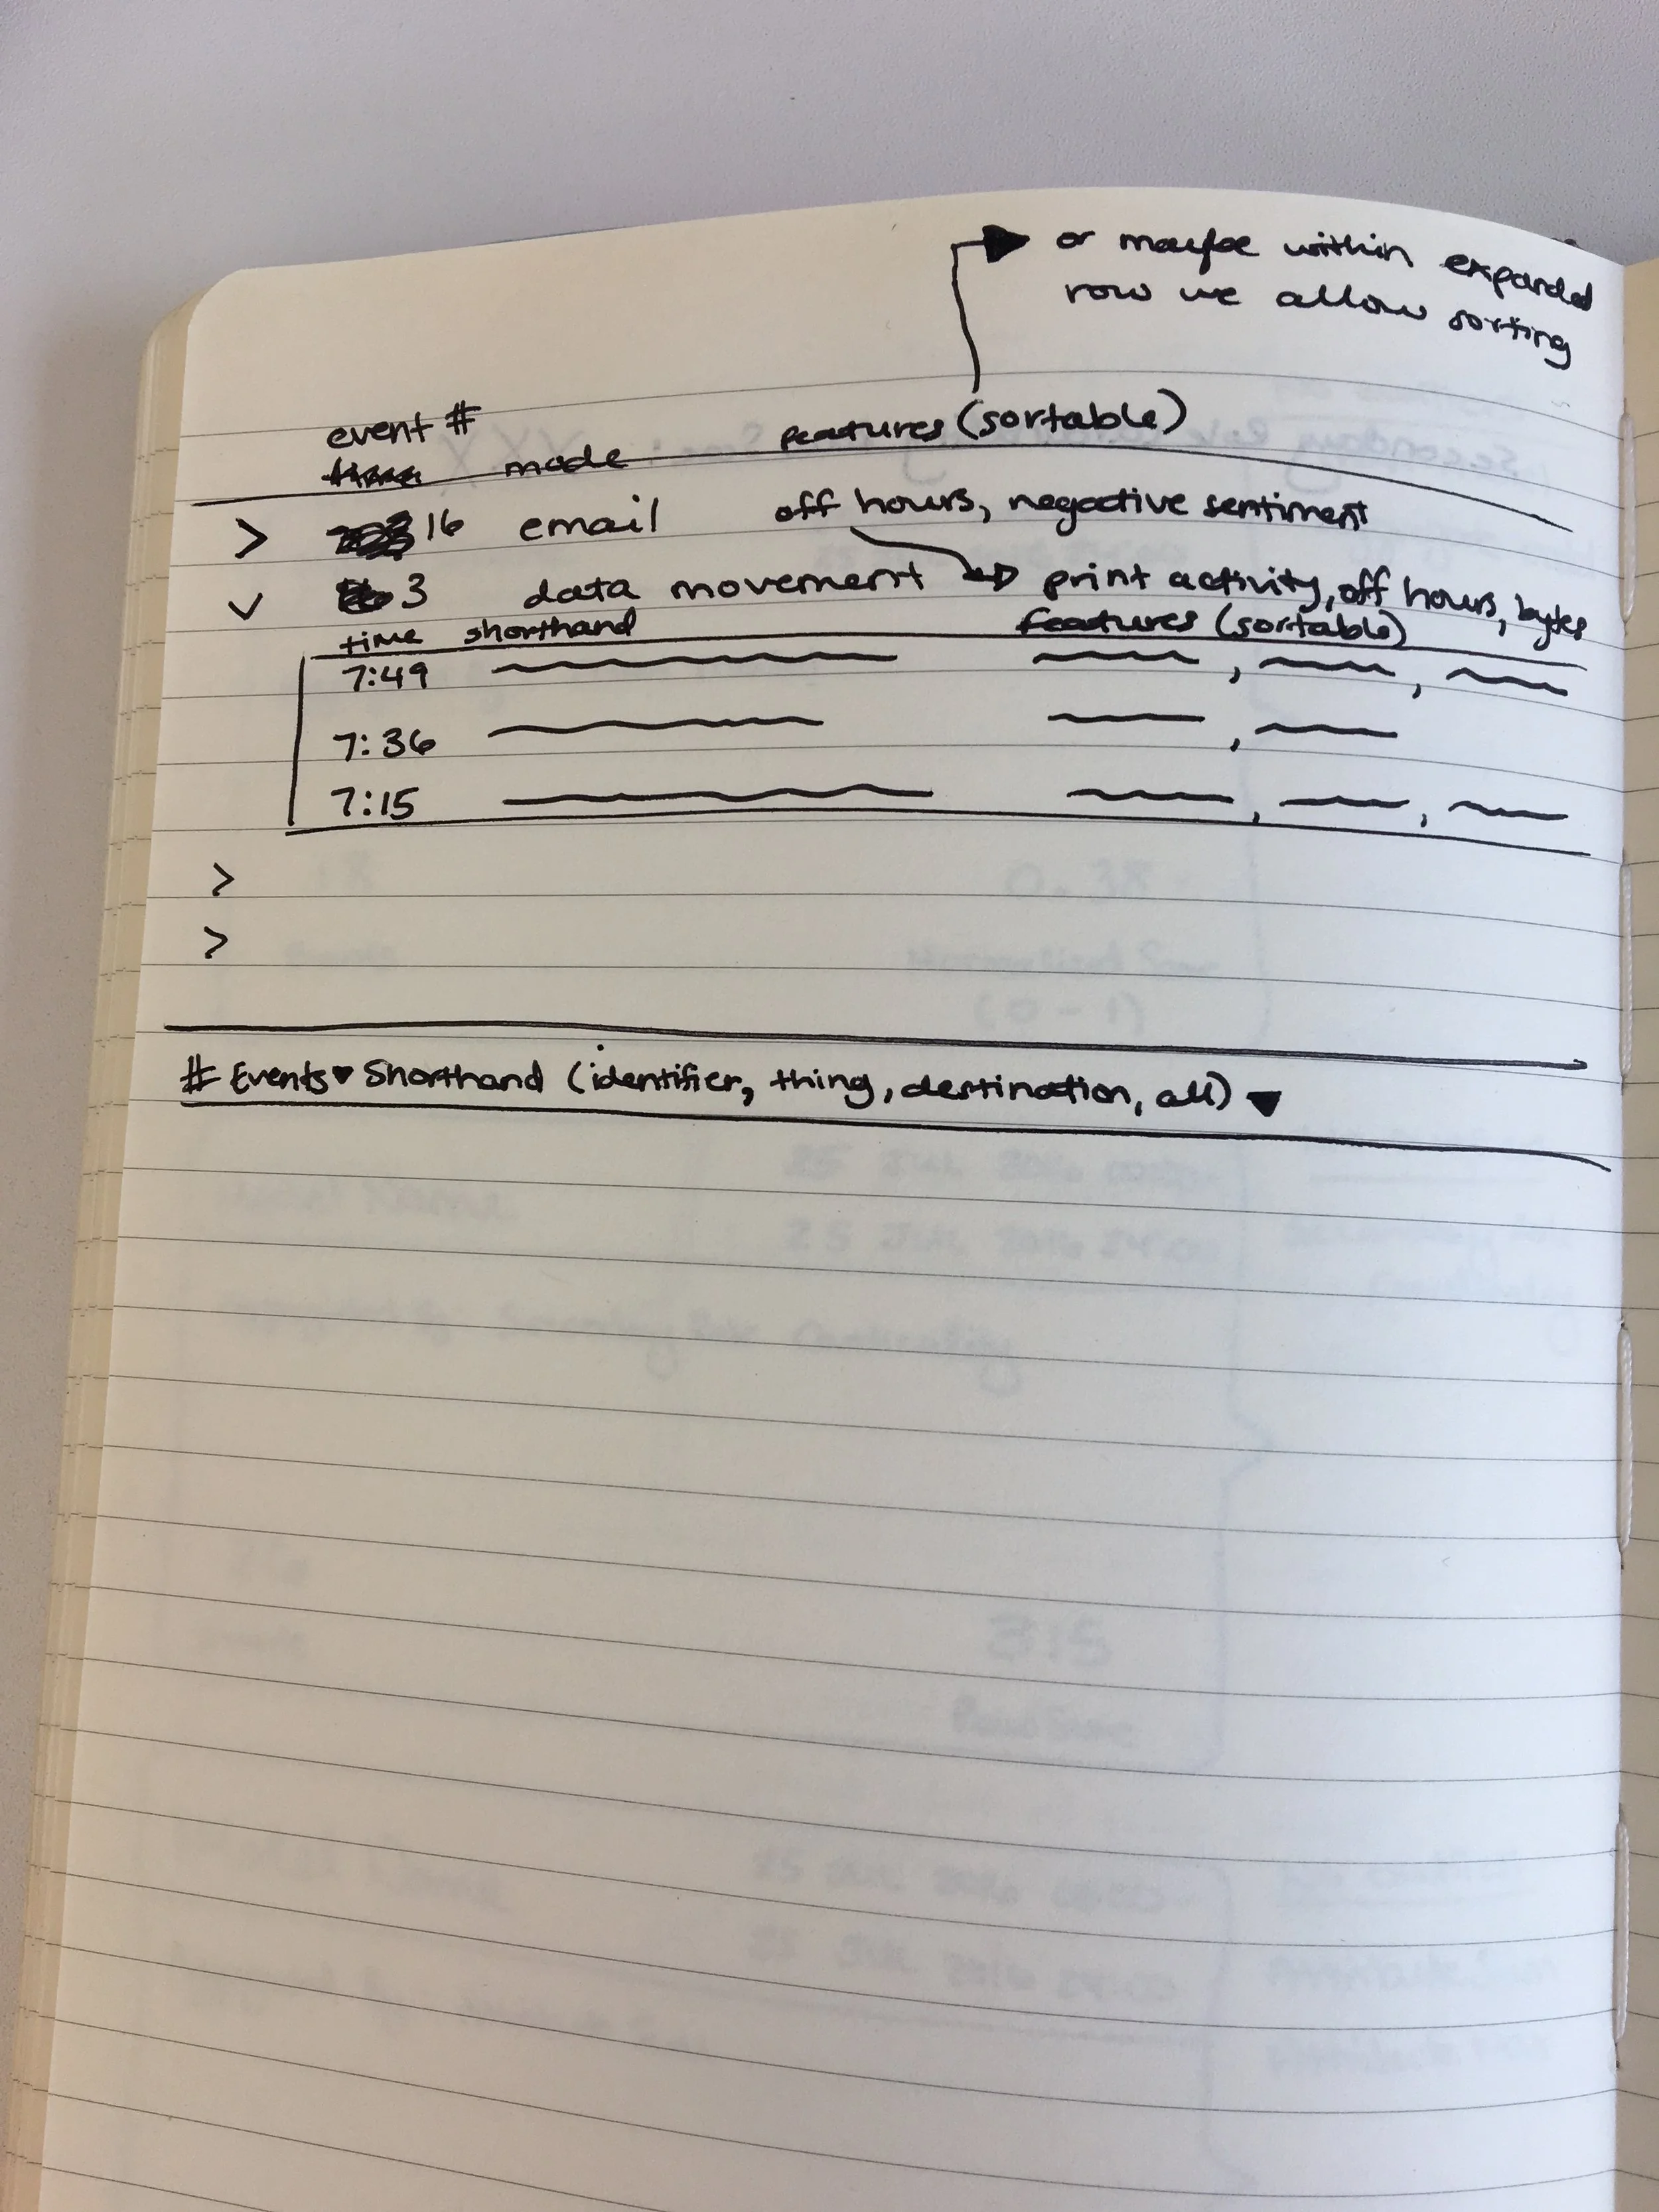 or maybe within expanded
row we allow sorting
event #
time mode features (sortable)
> 16 email off hours, negative sentiment
v 3 data movement print activity, off hours, bytes
time shorthand features (sortable)
7:49
7:36
7:15
>
>
# Events ▾ Shorthand (identifier, thing, destination, all) ▾